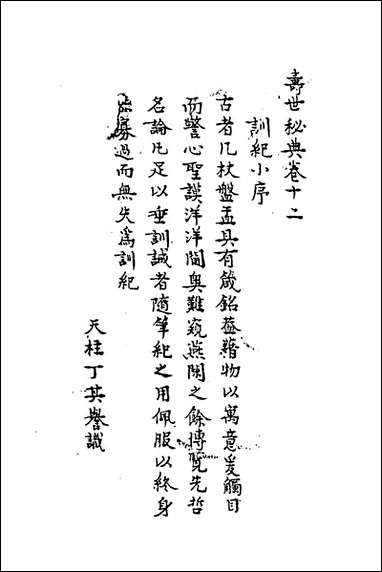 壽世秘典卷十二
訓紀小序
古者几杖盤盂具有箴銘蓋藉物以寓意爰觸目
而警心聖謨洋洋閫奥難窺燕閒之餘摶覽先哲
名論凡足以垂訓誡者隨筆紀之用佩服以終身
庶寡過而無失爲訓紀
天柱丁其譽識